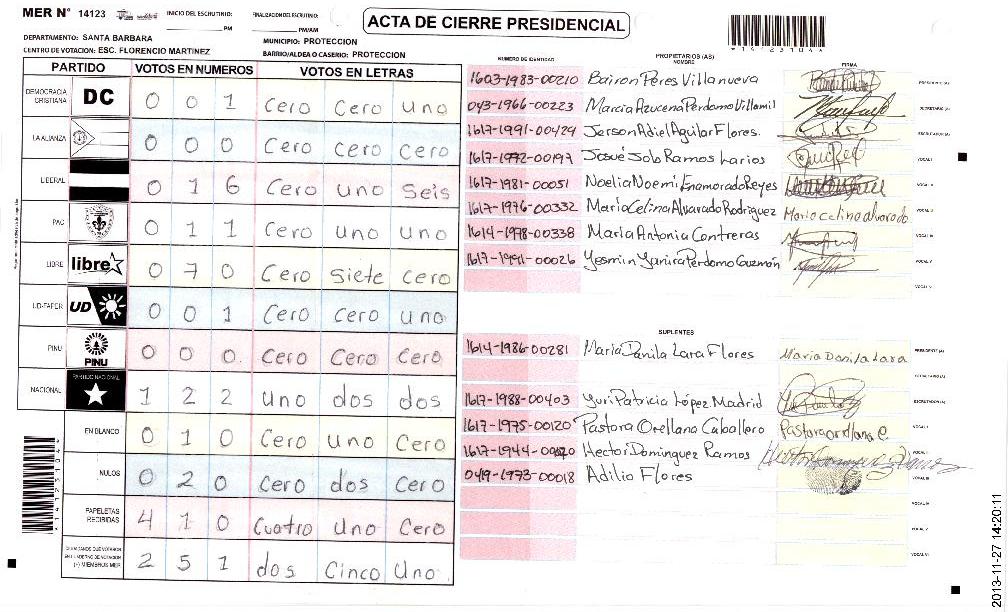 MER N° 14123
INICIO DEL ESCRUTINIO: PM
FINALIZACION DEL ESCRUTINIO: PM/AM
ACTA DE CIERRE PRESIDENCIAL
*14123104*
DEPARTAMENTO: SANTA BARBARA
MUNICIPIO: PROTECCION
CENTRO DE VOTACION: ESC. FLORENCIO MARTINEZ
BARRIO/ALDEA O CASERIO: PROTECCION
PARTIDO VOTOS EN NUMEROS VOTOS EN LETRAS
DEMOCRACIA CRISTIANA DC 0 0 1 Cero Cero uno
LA ALIANZA 0 0 0 Cero cero cero
LIBERAL 0 1 6 Cero uno Seis
PAC 0 1 1 Cero uno uno
LIBRE libre 0 7 0 Cero siete cero
UD-FAPER UD 0 0 1 Cero cero uno
PINU PINU 0 0 0 Cero Cero Cero
NACIONAL PARTIDO NACIONAL 1 2 2 uno dos dos
EN BLANCO 0 1 0 Cero uno Cero
NULOS 0 2 0 Cero dos Cero
PAPELETAS RECIBIDAS 4 1 0 Cuatro uno Cero
CIUDADANOS QUE VOTARON EN CUADERNO DE VOTACION (+) MIEMBROS MER 2 5 1 dos Cinco Uno
NUMERO DE IDENTIDAD PROPIETARIOS (AS) NOMBRE FIRMA
1603-1983-00210 Bairon Peres Villanueva PRESIDENTE (A)
043-1966-00223 Marcia Azucena Perdomo Villamil SECRETARIO (A)
1617-1991-00429 Jerson Adiel Aguilar Flores. ESCRUTADOR (A)
1617-1972-00197 Josué Job Ramos Larios VOCAL I
1617-1981-00051 Noelia Noemí Enamorado Reyes VOCAL II
1617-1976-00332 María Celina Alvarado Rodriguez Maria celina alvarado VOCAL III
1614-1978-00338 María Antonia Contreras VOCAL IV
1617-1991-00026 Yesmin Yanira Perdomo Guzmón VOCAL V
VOCAL VI
SUPLENTES
1614-1986-00281 María Danila Lara Flores Maria Danila Lara PRESIDENTE (A)
SECRETARIO (A)
1617-1988-00403 Yuri Patricia López Madrid ESCRUTADOR (A)
1617-1975-00120 Pastora Orellana Caballero Pastora orellana C VOCAL I
1617-1944-00020 Hector Dominguez Ramos VOCAL II
049-1973-00018 Adilio Flores VOCAL III
VOCAL IV
VOCAL V
VOCAL VI
*14123104*
2013-11-27 14:20:11